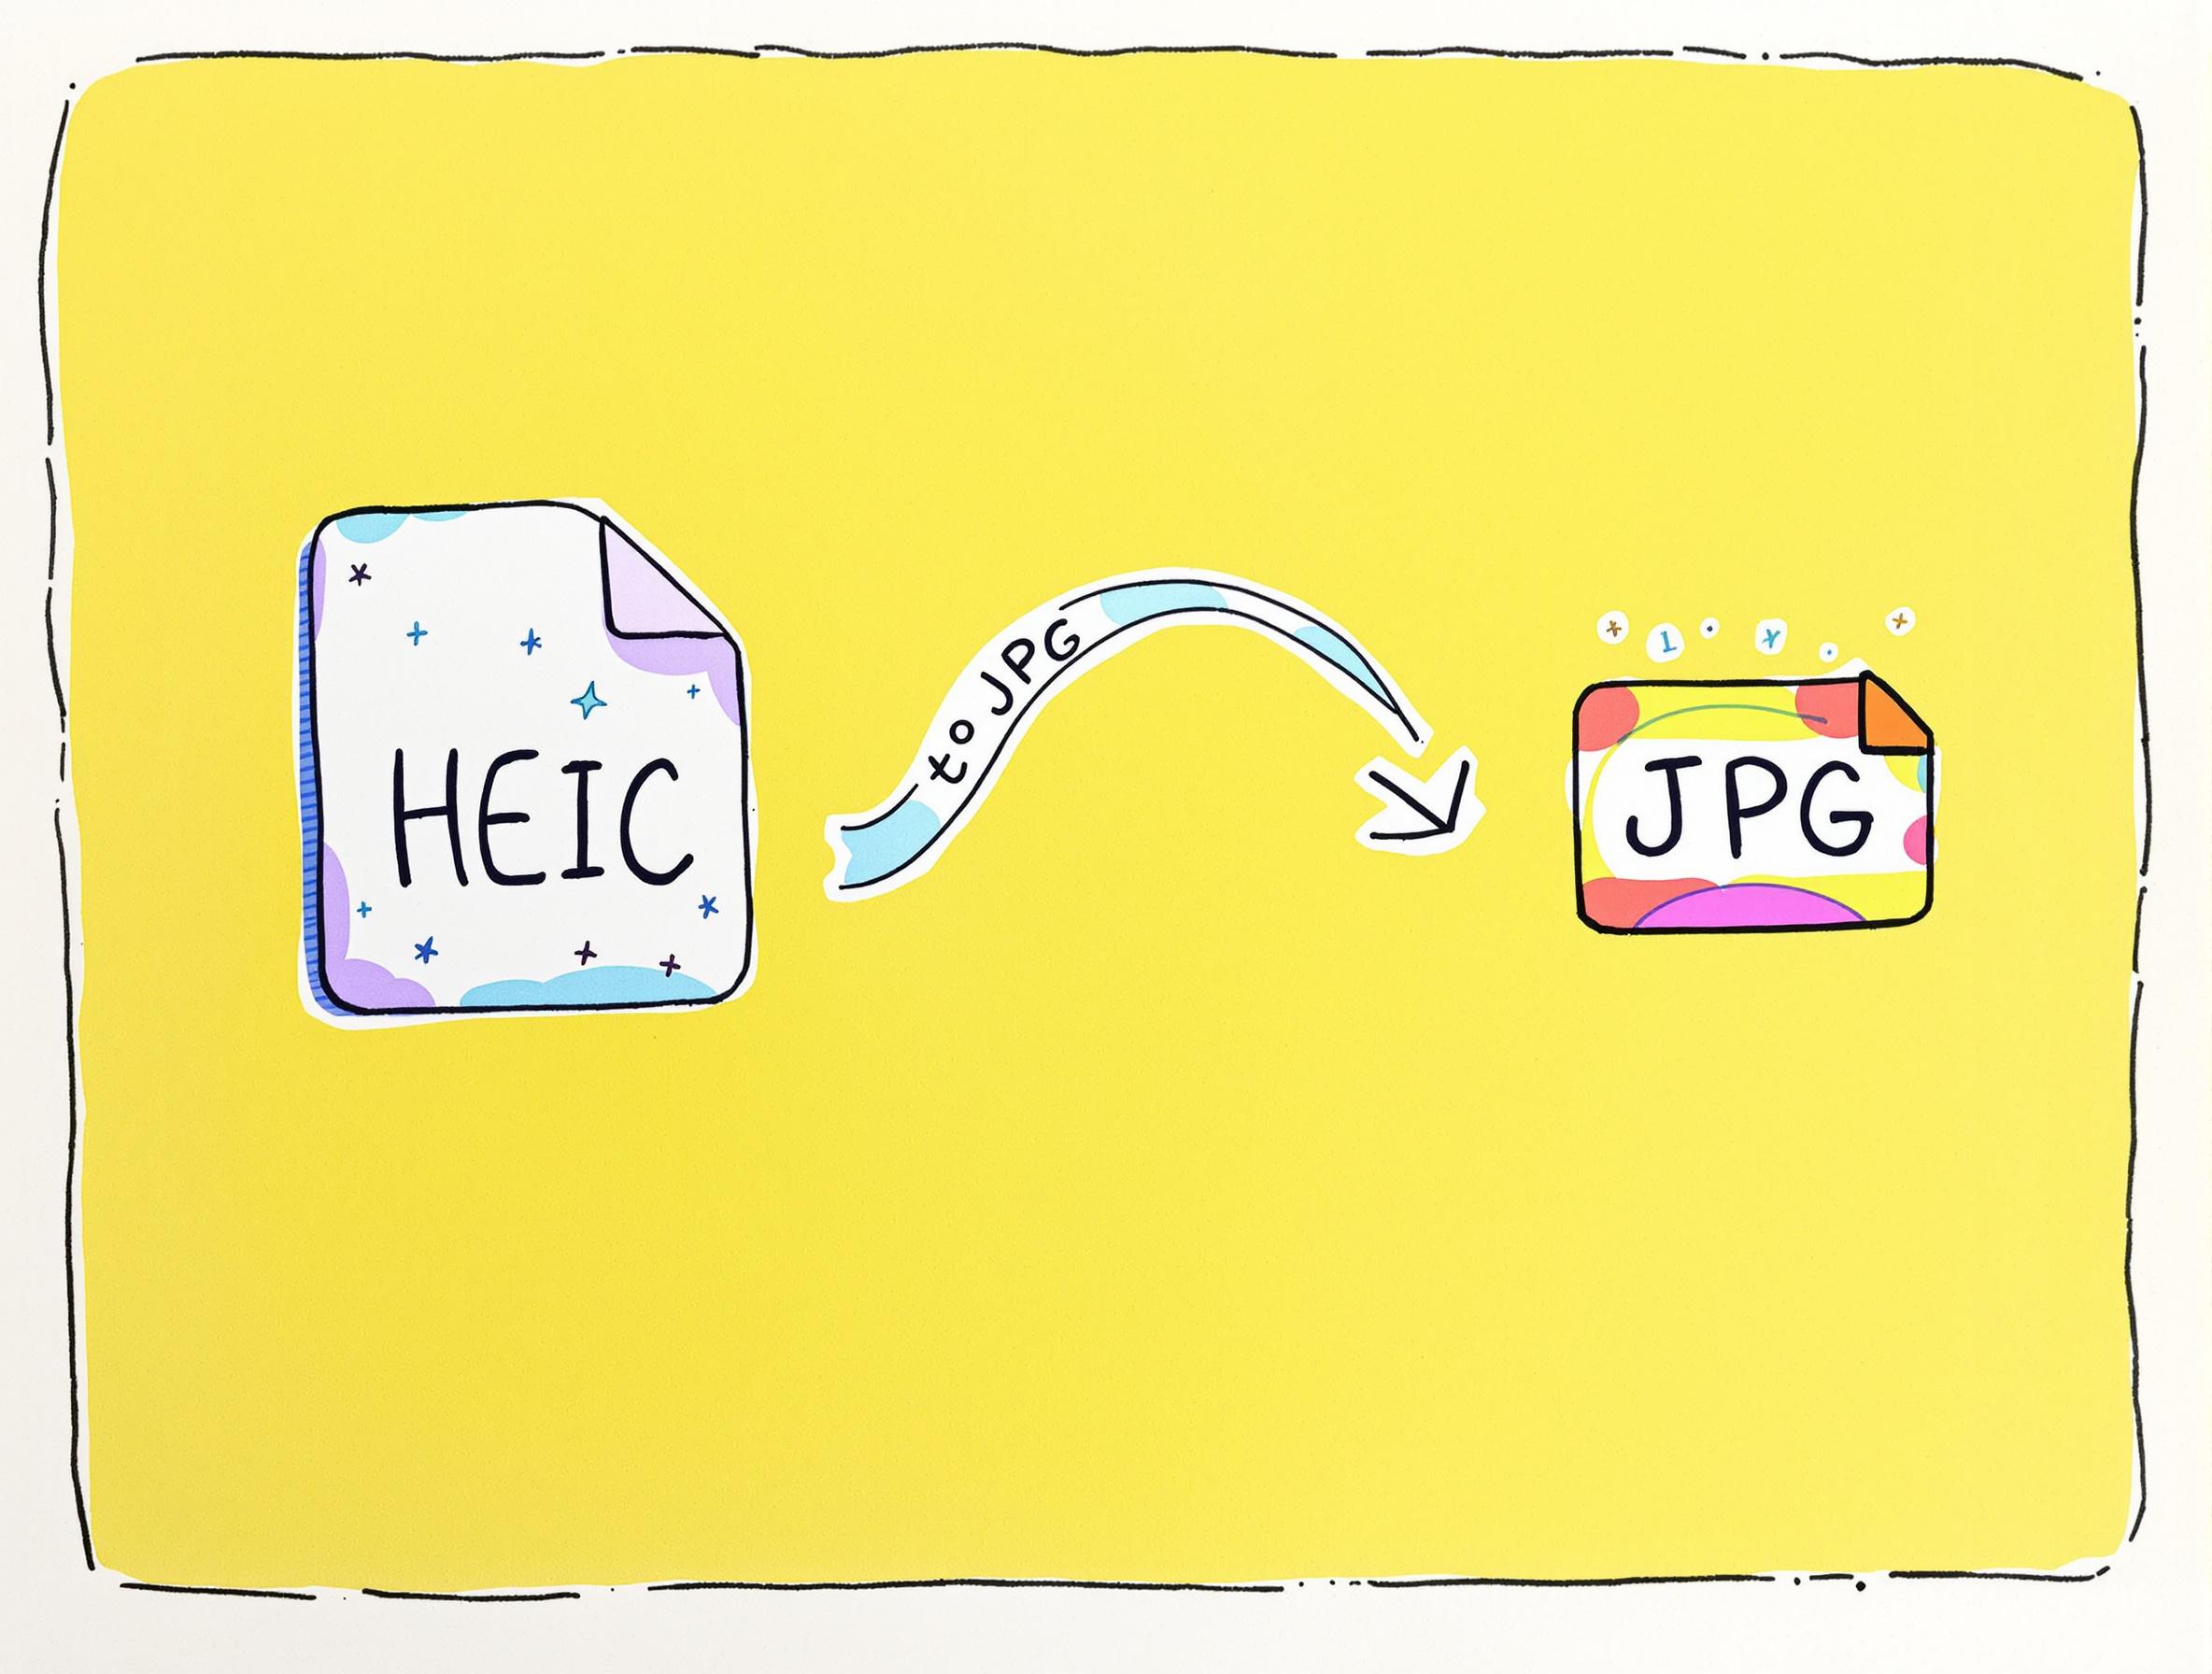 HEIC
to JPG
JPG